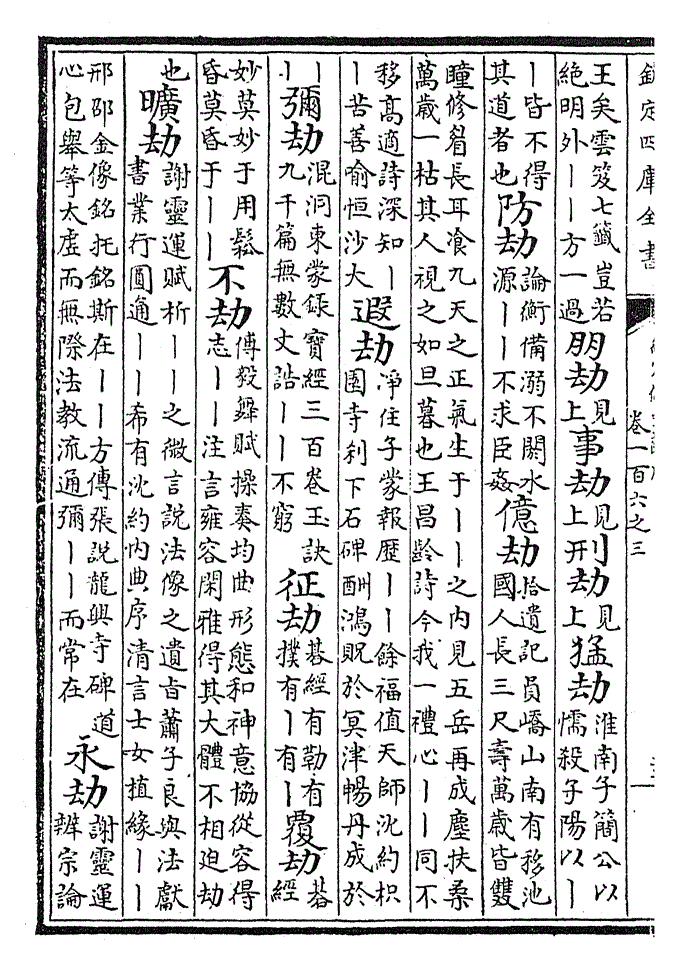 欽定四庫全書
卷一百六之三
王矣雲笈七籤豈若
絶明外丨丨方一過
朋劫
見
上
事劫
見
上
刑劫
見
上
猛劫
淮南子簡公以
懦殺子陽以丨
丨皆不得
其道者也
防劫
論衡備溺不闕水
源丨丨不求臣姦
億劫
拾遺記員嶠山南有移池
國人長三尺壽萬歲皆雙
瞳修眉長耳飡九天之正氣生于丨丨之内見五岳再成塵扶桑
萬歲一枯其人視之如旦暮也王昌齡詩今我一禮心丨丨同不
移高適詩深知丨
丨苦善喻恒沙大
遐劫
淨住子蒙報歷丨丨餘福值天師沈約枳
園寺刹下石碑酬鴻貺於冥津暢丹成於
丨
丨
彌劫
混洞東蒙録寶經三百卷玉訣
九千篇無數文誥丨丨不窮
征劫
棊經有勒有
撲有丨有丨
覆劫
棊
經
妙莫妙于用鬆
昏莫昏于丨丨
不劫
傅毅舞賦操奏均曲形態和神意協從容得
志丨丨注言雍容閑雅得其大體不相迫劫
也
曠劫
謝靈運賦析丨丨之微言說法像之遺旨蕭子良與法獻
書業行圓通丨丨希有沈約内典序清言士女植縁丨丨
邢邵金像銘托銘斯在丨丨方傳張說龍興寺碑道
心包舉等太虚而無際法教流通彌丨丨而常在
永劫
謝靈運
辨宗論